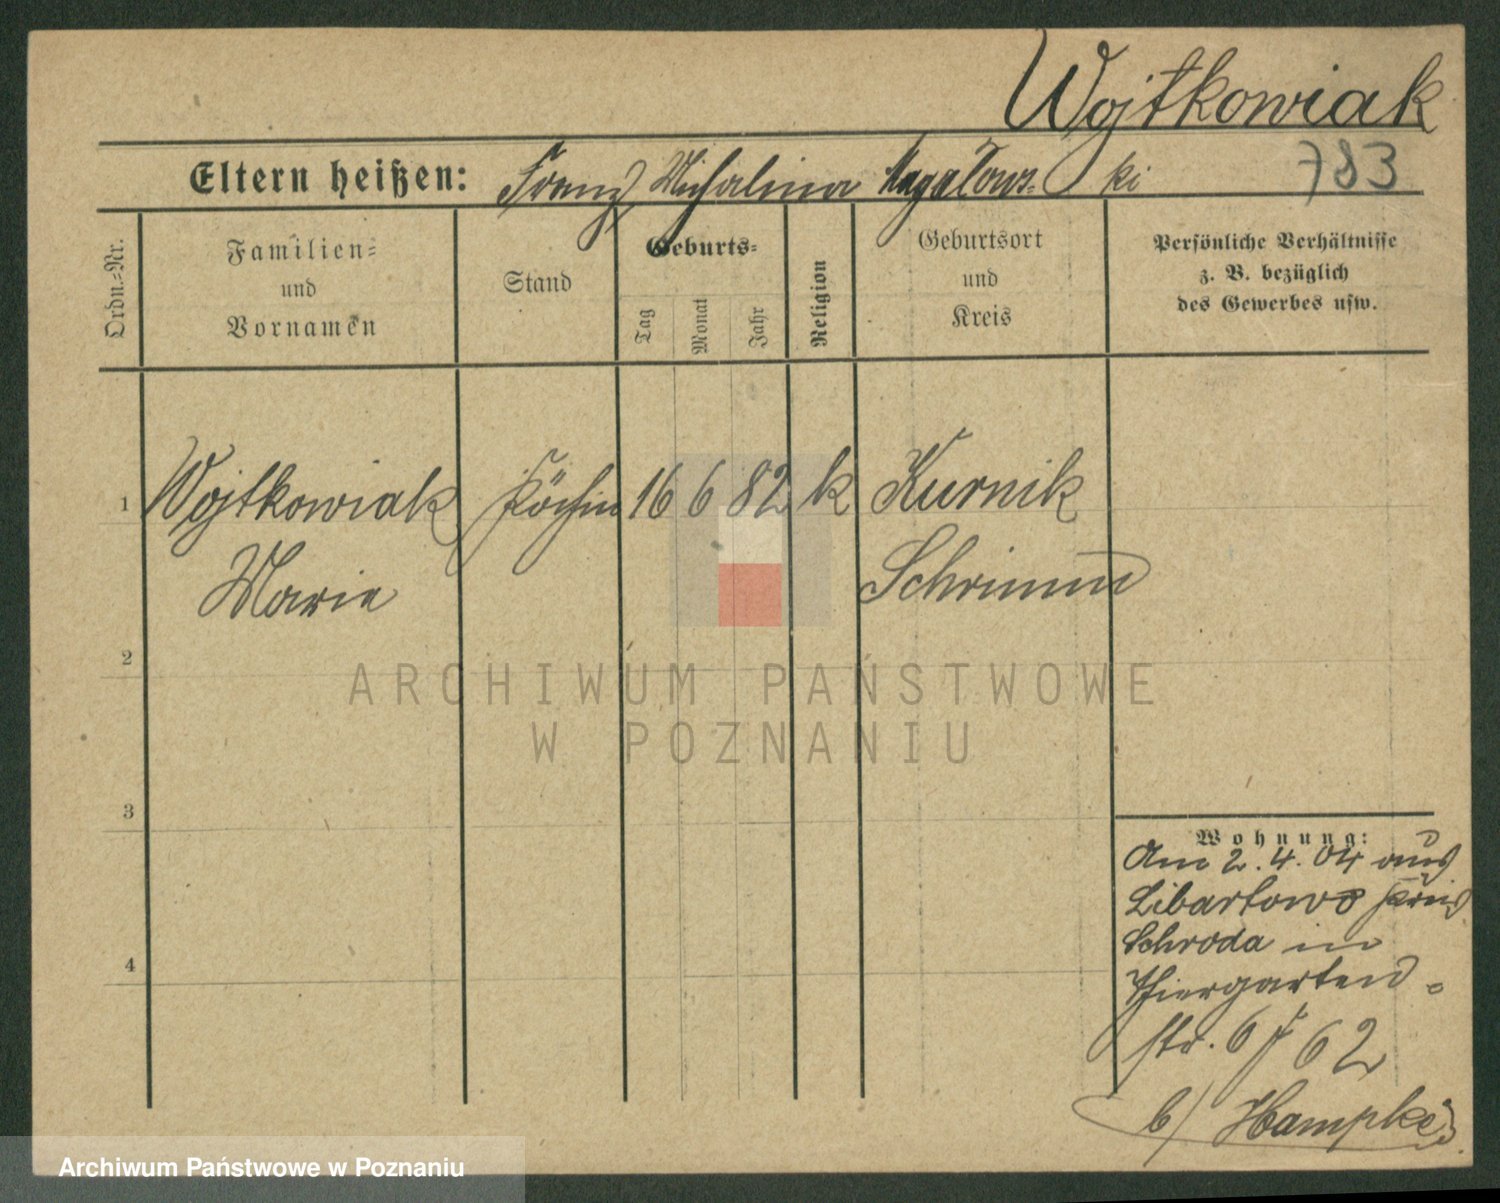 Wojtkowiak
Eltern heißen: Franz Michalina ki
783
Ordn.-Nr.
Familien-
und
Vornamen
Stand
Geburts-
Tag
Monat
Jahr
Religion
Geburtsort
und
Kreis
Persönliche Verhältnisse
z. B. bezüglich
des Gewerbes usw.
1
Wojtkowiak Köchin 16 6 82 k Kurnik
Marie Schrimm
2
3
4
ARCHIWUM PAŃSTWOWE
W POZNANIU
Wohnung:
Am 2.4.04 aus
Libartowo Kreis
Schroda in
Thiergarten-
str. 6 62
b/ Hampke
Archiwum Państwowe w Poznaniu